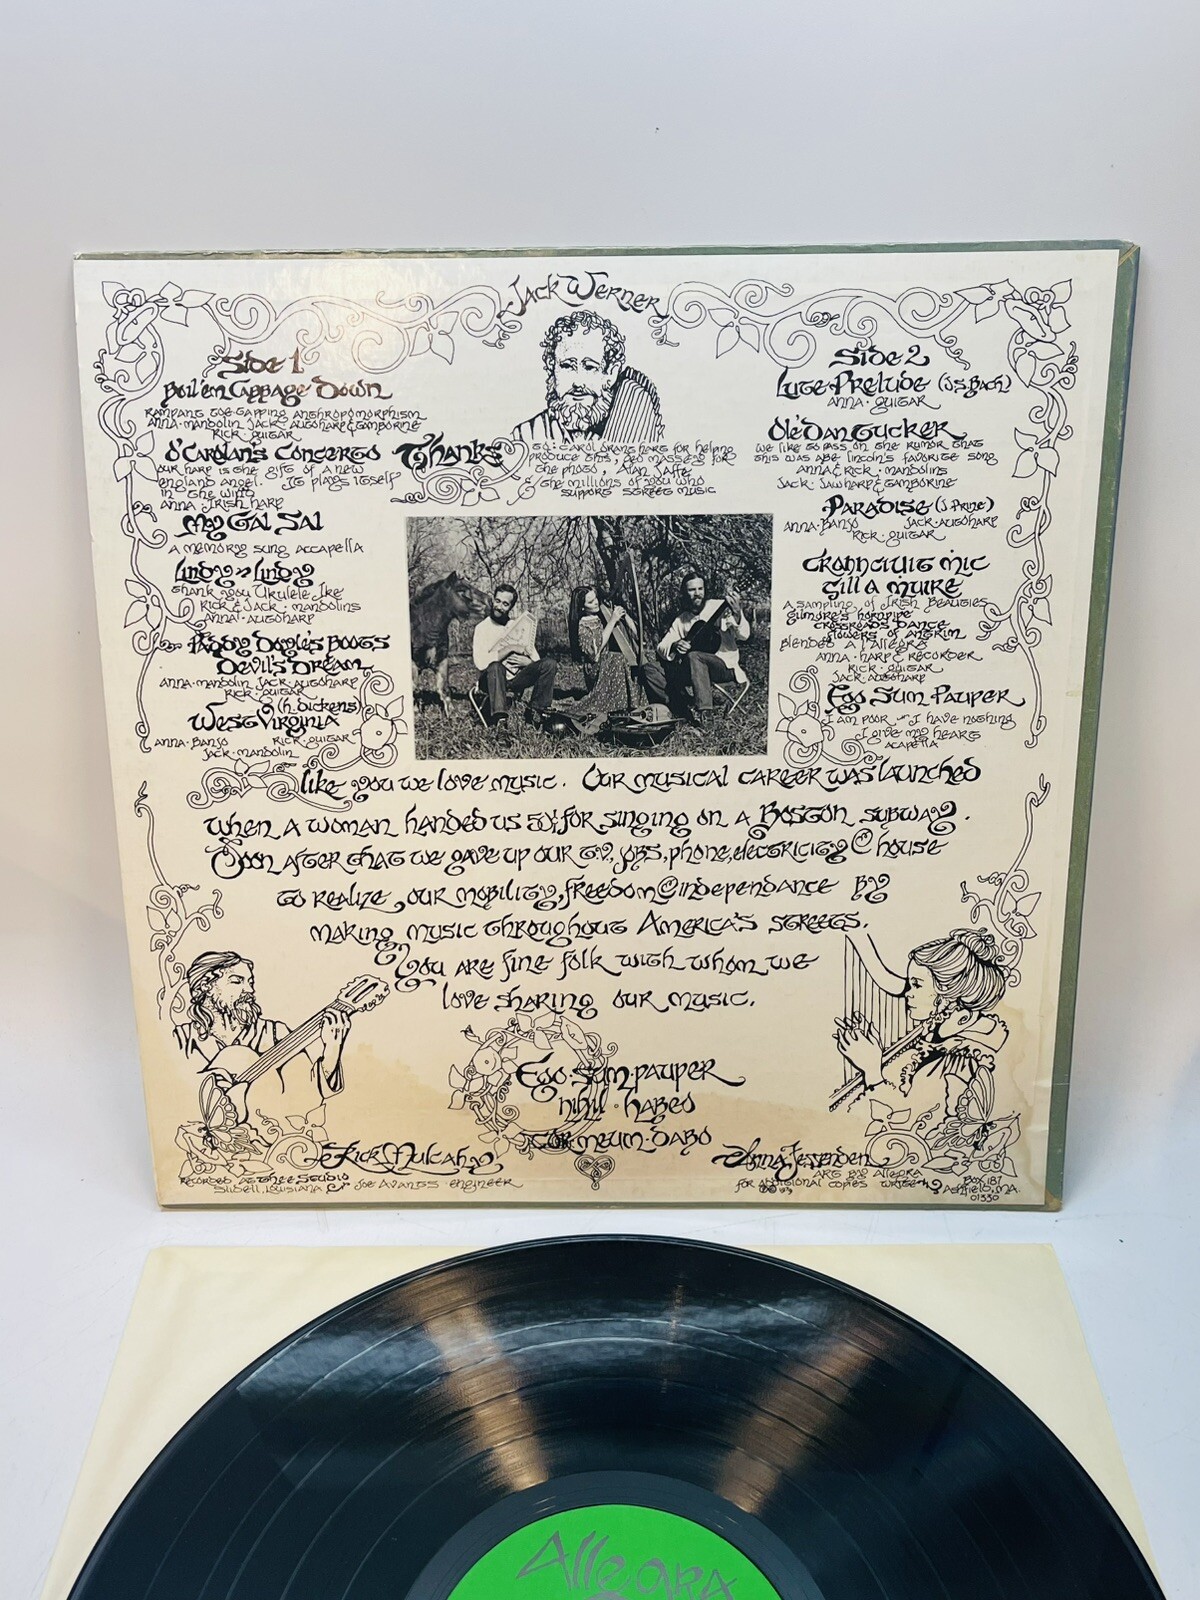 Jack Werner
Side 1
Boil'em Cabbage Down
Rampant toe-tapping anthropomorphism
Anna·mandolin Jack·autoharp & tamborine
Rick·guitar
O'Carolan's Concerto
our harp is the gift of a new
england angel. It plays itself
in the wind
anna·Irish harp
My Gal Sal
a memory sung accapella
Lindy Lindy
thank you Ukulele Ike
Rick & Jack·mandolins
Anna·autoharp
Paddy Doyle's Boots
Devil's Dream
Anna·mandolin Jack·autoharp
Rick·guitar
(h. dickens)
West Virginia
anna·Banjo Rick·guitar
Jack·mandolin
Thanks
to: Carol Drane hart for helping
produce this, Ded Massey for
the photo, Alan Jaffe
& the millions of you who
support street music
Side 2
Lute Prelude (J.S. Bach)
Anna·guitar
Ole'Dan Tucker
we like to pass on the rumor that
this was abe lincoln's favorite song
anna & Rick·mandolins
Jack·Jawharp & tamborine
Paradise (J. Prine)
anna·banjo Jack·autoharp
Rick·guitar
Crannciuit Mic
Gill a Muire
a sampling of Irish Beauties
gilmore's hornpipe
crossroads dance
flowers of antrim
Blended a l'allegra
Anna·harp & recorder
Rick·guitar
Jack·autoharp
Ego Sum Pauper
I am poor I have nothing
I give my heart
acapella
Like you we love music. Our musical career was launched
when a woman handed us 50¢ for singing on a Boston subway.
Soon after that we gave up our t.v., jobs, phone, electricity & house
to realize our mobility, freedom & independance by
making music throughout America's streets.
You are fine folk with whom we
love sharing our music.
Ego·Sum·pauper
nihil·habeo
Cor·meum·dabo
Rick Mulcahy
Recorded at
Studio
Slidell, Louisiana Joe Avants·engineer
Anna Fessenden
art by Allegra
for additional copies write
Box 187
Ashfield, MA.
01330
Allegra